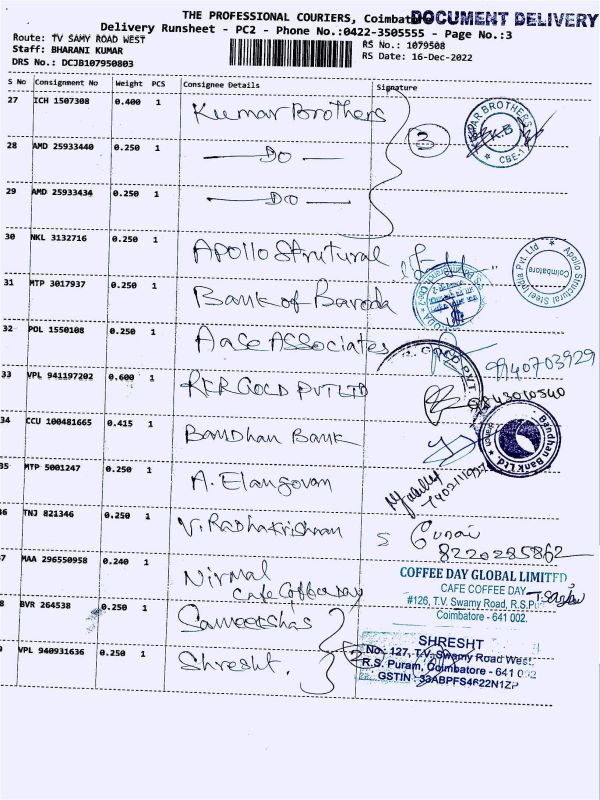 THE PROFESSIONAL COURIERS, Coimbat
DOCUMENT DELIVERY
Delivery Runsheet - PC2 - Phone No.:0422-3505555 - Page No.:3
Route: TV SAMY ROAD WEST
RS No.: 1079508
Staff: BHARANI KUMAR
RS Date: 16-Dec-2022
DRS No.: DCJB107950803
S No Consignment No Weight PCS Consignee Details Signature
27 ICH 1507308 0.400 1 Kumar Brothers 3
BROTHERS K.B CBE-1
28 AMD 25933440 0.250 1 Do
29 AMD 25933434 0.250 1 Do
30 NKL 3132716 0.250 1 Apollo Strutural
Apollo Structural Steel India Pvt. Ltd Coimbatore
31 MTP 3017937 0.250 1 Bank of Baroda
32 POL 1550108 0.250 1 Aase Associates
33 VPL 941197202 0.600 1 RKR GOLD PVT LTD
34 CCU 100481665 0.415 1 Bandhan Bank
Bandhan Bank Ltd.
35 MTP 5001247 0.250 1 A. Elangovan
36 TNJ 821346 0.250 1 V. Radhakrishnan
8220285862
37 MAA 296550958 0.240 1 Nirmal
Cafe Coffee Day
COFFEE DAY GLOBAL LIMITED
CAFE COFFEE DAY
#126, T.V. Swamy Road, R.S.Pu
Coimbatore - 641 002.
38 BVR 264538 0.250 1 Sameetshas
39 VPL 940931636 0.250 1 Shresht. 2
SHRESHT
No: 127, T.V. Swamy Road West,
R.S. Puram, Coimbatore - 641 002
GSTIN : 33ABPFS4622N1ZP